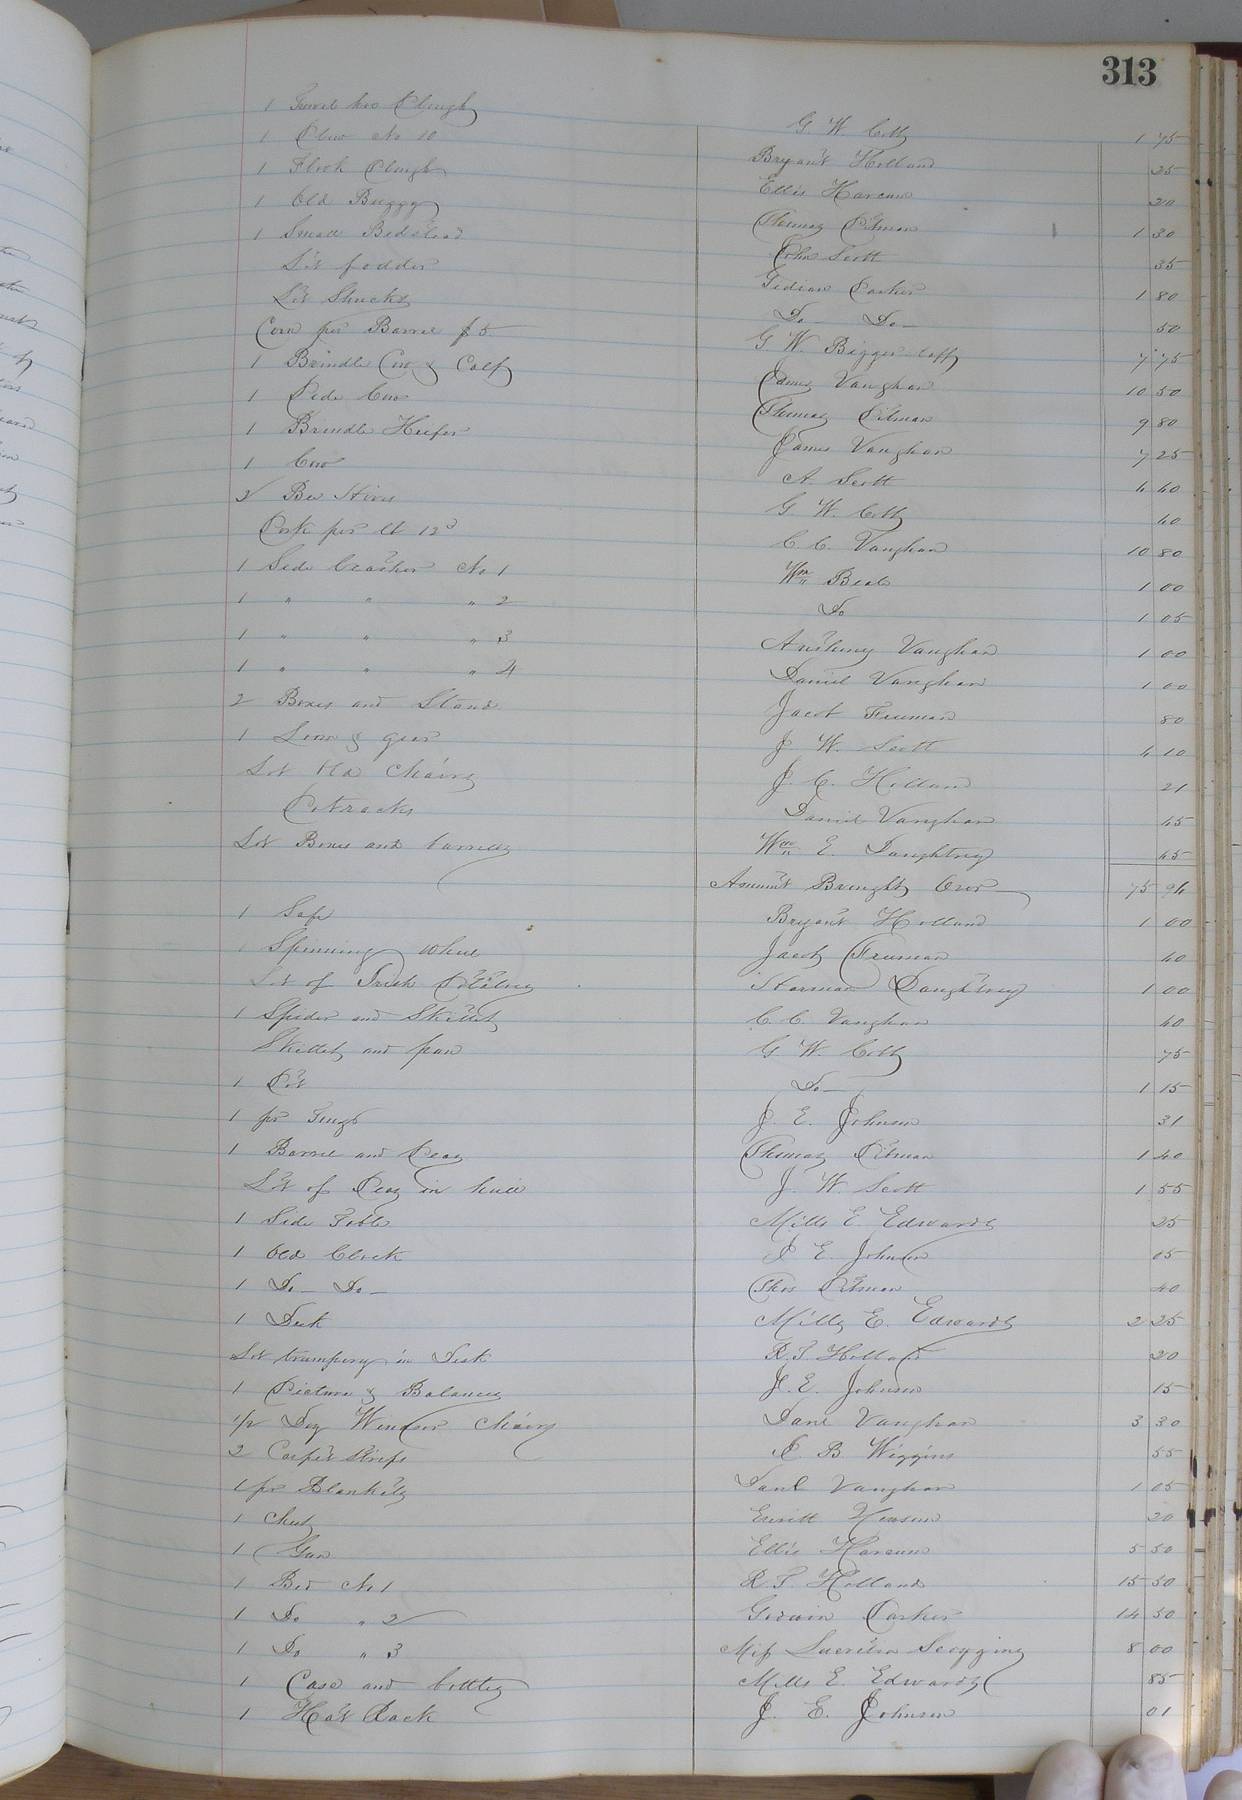 313
1 hoe Plough G W Cobb 1 75
1 Plow No 10 Bryant Holland 25
1 Fluk Plough Ellis Harcum 20
1 Old Buggy Thomas Pitman 1 30
1 Small Bedstead John Scott 35
Lot fodder Gideon Parker 1 80
Lot Shucks Do Do 50
Corn per Barrel $5 G W Biggers 7 75
1 Brindle Cow & Calf James Vaughan 10 50
1 Pide Cow Thomas Pitman 9 80
1 Brindle Heifer James Vaughan 7 25
1 Cow A. Scott 4 40
2 Bee Hives G. W. Cobb 40
Pork per lb 12 C. C. Vaughan 10 80
1 Side Leather No 1 Wm Beal 1 00
1 " " " 2 Do 1 05
1 " " " 3 Anthony Vaughan 1 00
1 " " " 4 Daniel Vaughan 1 00
2 Boxes and Stand Jacob Freeman 80
1 Loom & gear J W. Scott 4 10
Lot Old Chairs J. C. Holland 21
Potracks Daniel Vaughan 45
Lot Boxes and barrells Wm E. Daughtrey 45
Amount Brought Over 75 94
1 Safe Bryant Holland 1 00
1 Spinning wheel Jacob Freeman 40
Lot of Irish Potatoes Harman Daughtrey 1 00
1 Spider and Skillet C. C. Vaughan 40
Skillet and pan G W. Cobb 75
1 Pot Do 1 15
1 pr Tongs J. E. Johnson 31
1 Barrel and Peas Thomas Pitman 1 40
Lot of Peas in hull J. W. Scott 1 55
1 Side Table Mills E. Edwards 25
1 Old Clock J E. Johnson 05
1 Do Do Thos Pitman 40
1 Desk Mills E. Edwards 2 25
Lot trumpery in Desk R. T. Holland 20
1 Picture & Balances J. E. Johnson 15
1/2 Doz Windsor Chairs Danl Vaughan 3 30
2 Carpet Strips B. Wiggins 55
1 pr Blankets Danl Vaughan 1 05
1 Chest Everitt 20
1 Gun Ellis Harcum 5 50
1 Bed No 1 R. T. Holland 15 50
1 Do " 2 Parker 14 50
1 Do " 3 Miss Scoggins 8 00
1 Case and bottles Mills E. Edwards 85
1 Hat Rack J. E. Johnson 01